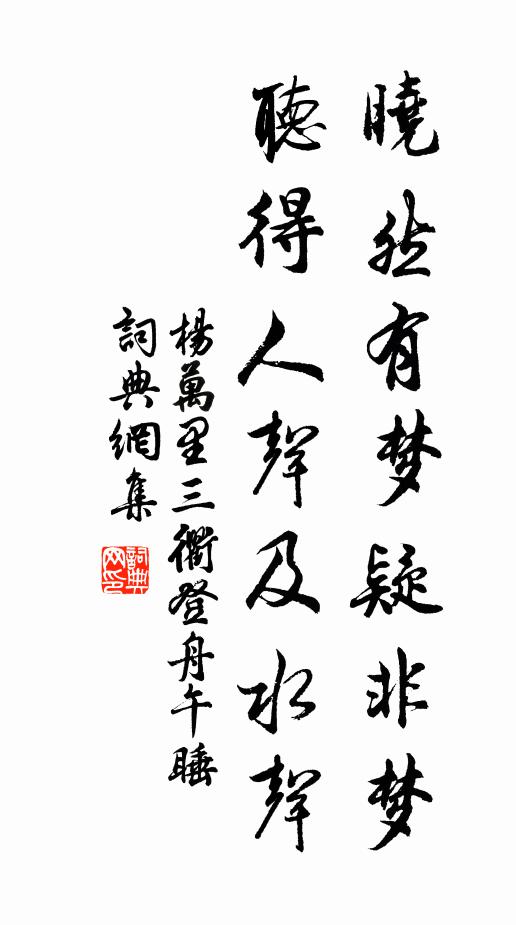 曉然有梦疑非梦
聽得人聲及水聲
楊萬里三衢登舟午睡
詞典網集
詞典网印